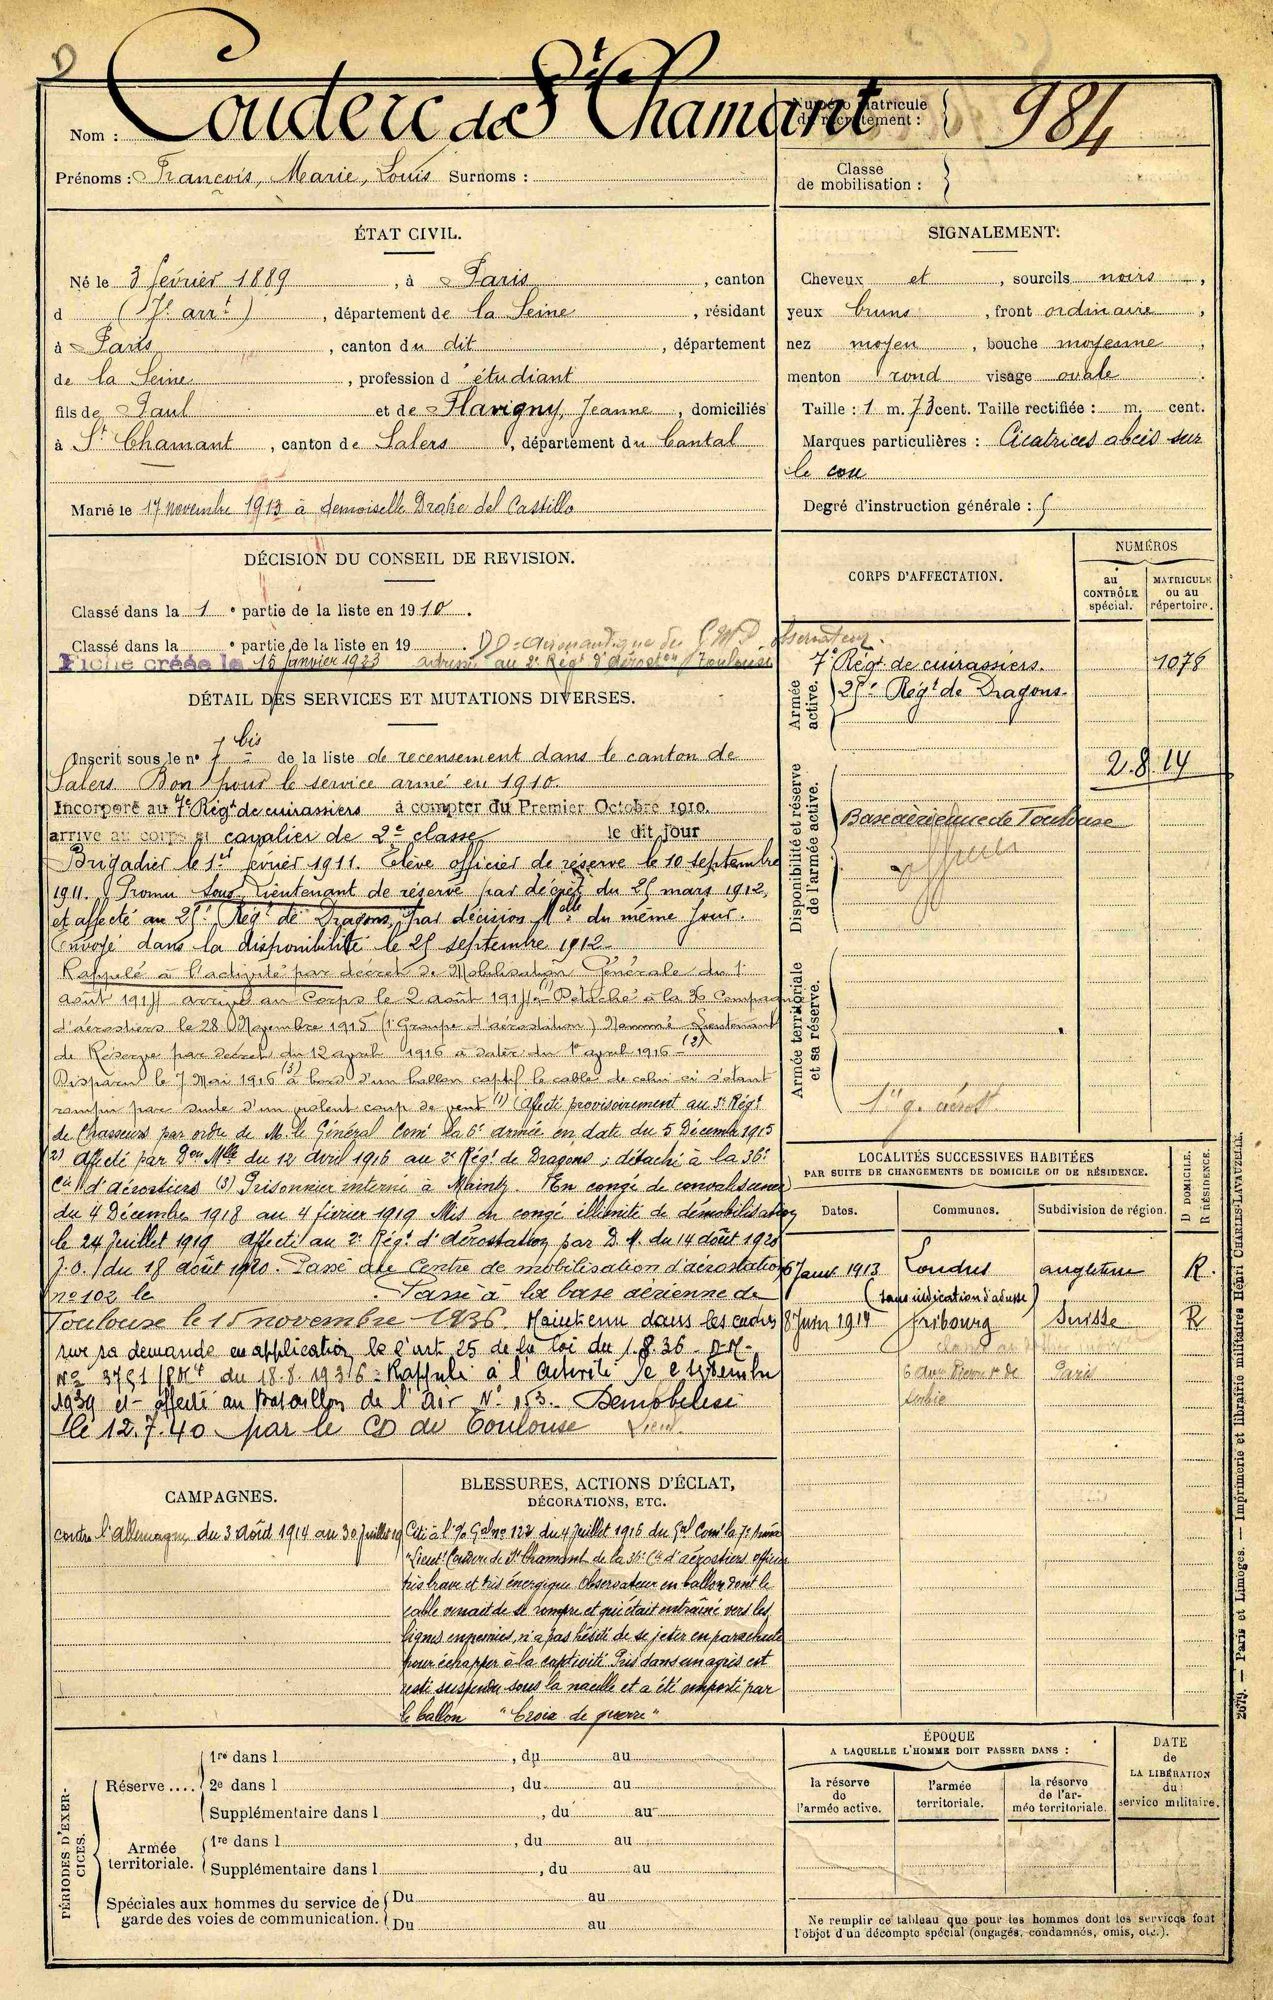 D
Nom : Couderc de St Chamant
Numéro matricule du recrutement : 984
Prénoms : François, Marie, Louis Surnoms :
Classe de mobilisation :
ÉTAT CIVIL.
Né le 3 février 1889, à Paris, canton
d (7e arrt), département de la Seine, résidant
à Paris, canton du dit, département
de la Seine, profession d'étudiant
fils de Paul et de Flavigny, Jeanne, domiciliés
à St Chamant, canton de Salers, département du Cantal
Marié le 17 novembre 1913 à demoiselle Drake del Castillo
SIGNALEMENT:
Cheveux et, sourcils noirs,
yeux bruns, front ordinaire,
nez moyen, bouche moyenne,
menton rond visage ovale.
Taille : 1 m. 73 cent. Taille rectifiée : m. cent.
Marques particulières : Cicatrices abcès sur
le cou
Degré d'instruction générale : 5
DÉCISION DU CONSEIL DE REVISION.
Classé dans la 1e partie de la liste en 1910.
Classé dans la e partie de la liste en 19
Fiche créée le 15 janvier 1923 adressé au 2e Régt d'aéroston Toulouse
DÉTAIL DES SERVICES ET MUTATIONS DIVERSES.
Inscrit sous le no 7 bis de la liste de recensement dans le canton de
Salers. Bon pour le service armé en 1910.
Incorporé au 7e Régt de cuirassiers à compter du Premier Octobre 1910.
arrivé au corps et cavalier de 2e classe le dit jour
Brigadier le 1er février 1911. Elève officier de réserve le 10 septembre
1911. Promu Sous Lieutenant de réserve par décret du 25 mars 1912,
et affecté au 25e Régt de Dragons, par décision Mlle du même jour.
Envoyé dans la disponibilité le 25 septembre 1912.
Rappelé à l'activité par décret de Mobilisation Générale du 1er
août 1914 arrivé au Corps le 2 août 1914 (1) Détaché à la 36 Compagnie
d'aérostiers le 28 Novembre 1915 (1er Groupe d'aérostation) Nommé Lieutenant
de Réserve par décret du 12 avril 1916 à dater du 1er avril 1916 - (2)
Disparu le 7 Mai 1916 (3) à bord d'un ballon captif le cable de celui ci s'étant
rompu par suite d'un violent coup de vent (1) Affecté provisoirement au 5e Régt
de Chasseurs par ordre de M. le Général Comt la 6e armée en date du 5 Décembre 1915
2) Affecté par Don Mlle du 12 avril 1916 au 2e Régt de Dragons ; détaché à la 36e
Cie d'aérostiers (3) Prisonnier interné à Maintz. En congé de convalescence
du 4 Décembre 1918 au 4 février 1919 Mis en congé illimité de démobilisation
le 24 Juillet 1919 Affecté au 2e Régt d'Aérostation par D. M. du 14 août 1920
J.O. du 18 août 1920. Passé au Centre de mobilisation d'aérostation
no 102 le Passé à la base aérienne de
Toulouse le 15 novembre 1936. Maintenu dans les cadres
sur sa demande en application de l'art 25 de la loi du 1.8.36 - D.M.
No 3751 du 18.8.1936 - Rappelé à l'activité le 2 septembre
1939 et affecté au Bataillon de l'air No 153. Démobilisé
le 12.7.40 par le CD de Toulouse
CORPS D'AFFECTATION.
NUMÉROS
au CONTRÔLE spécial.
MATRICULE ou au répertoire.
Armée active.
7e Régt de cuirassiers. 1078
25e Régt de Dragons
2.8.14
Disponibilité et réserve de l'armée active.
Base aérienne de Toulouse
Armée territoriale et sa réserve.
LOCALITÉS SUCCESSIVES HABITÉES
PAR SUITE DE CHANGEMENTS DE DOMICILE OU DE RÉSIDENCE.
Dates. Communes. Subdivision de région. D DOMICILE. R RÉSIDENCE.
6 Janv 1913 Londres angleterre R.
(sans indication d'adresse)
8 Juin 1914 fribourg Suisse R
6 Avenue Pierre 1er de Paris
Serbie
CAMPAGNES.
contre l'Allemagne du 3 août 1914 au 30 Juillet 19
BLESSURES, ACTIONS D'ÉCLAT,
DÉCORATIONS, ETC.
Cité à l'o/ Gal no 122 du 4 Juillet 1916 du Gal Comt la 7e armée
"Lieutt Couderc de St Chamant de la 36e Cie d'aérostiers officier
très brave et très énergique Observateur en ballon dont le
cable venait de se rompre et qui était entraîné vers les
lignes ennemies, n'a pas hésité de se jeter en parachute
pour échapper à la captivité Pris dans un agrès est
resté suspendu sous la nacelle et a été emporté par
le ballon "Croix de guerre"
PÉRIODES D'EXERCICES.
Réserve....
1re dans l , du au
2e dans l , du au
Supplémentaire dans l , du au
Armée territoriale.
1re dans l , du au
Supplémentaire dans l , du au
Spéciales aux hommes du service de garde des voies de communication.
Du au
Du au
ÉPOQUE
A LAQUELLE L'HOMME DOIT PASSER DANS :
la réserve de l'armée active.
l'armée territoriale.
la réserve de l'armée territoriale.
DATE de LA LIBÉRATION du service militaire.
Ne remplir ce tableau que pour les hommes dont les services font
l'objet d'un décompte spécial (engagés, condamnés, omis, etc.).
2679. — Paris et Limoges. — Imprimerie et librairie militaires Henri CHARLES-LAVAUZELLE.